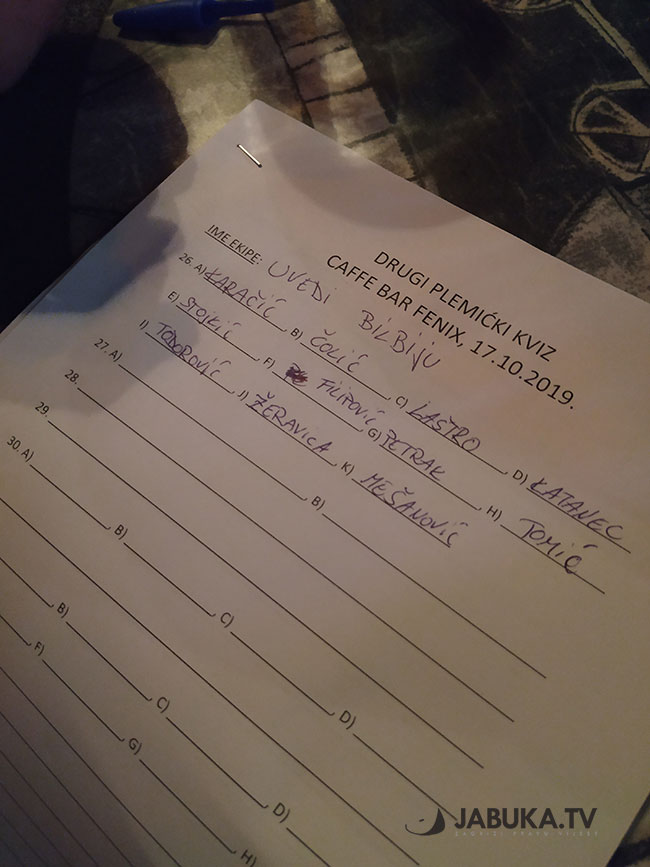 DRUGI PLEMIĆKI KVIZ
CAFFE BAR FENIX, 17.10.2019.
IME EKIPE: UVEDI BILBIJU
26. A) KARAČIĆ B) ČOLIĆ C) LAŠTRO D) KATANEC
E) STOJKIĆ F) FILIPOVIĆ G) PETRAK H) TOMIĆ
I) TODOROVIĆ J) ŽERAVICA K) MEŠANOVIĆ
27. A) B)
28.
29.
30. A) B) C) D)
B) C) D)
F) G) H)
JABUKA.TV